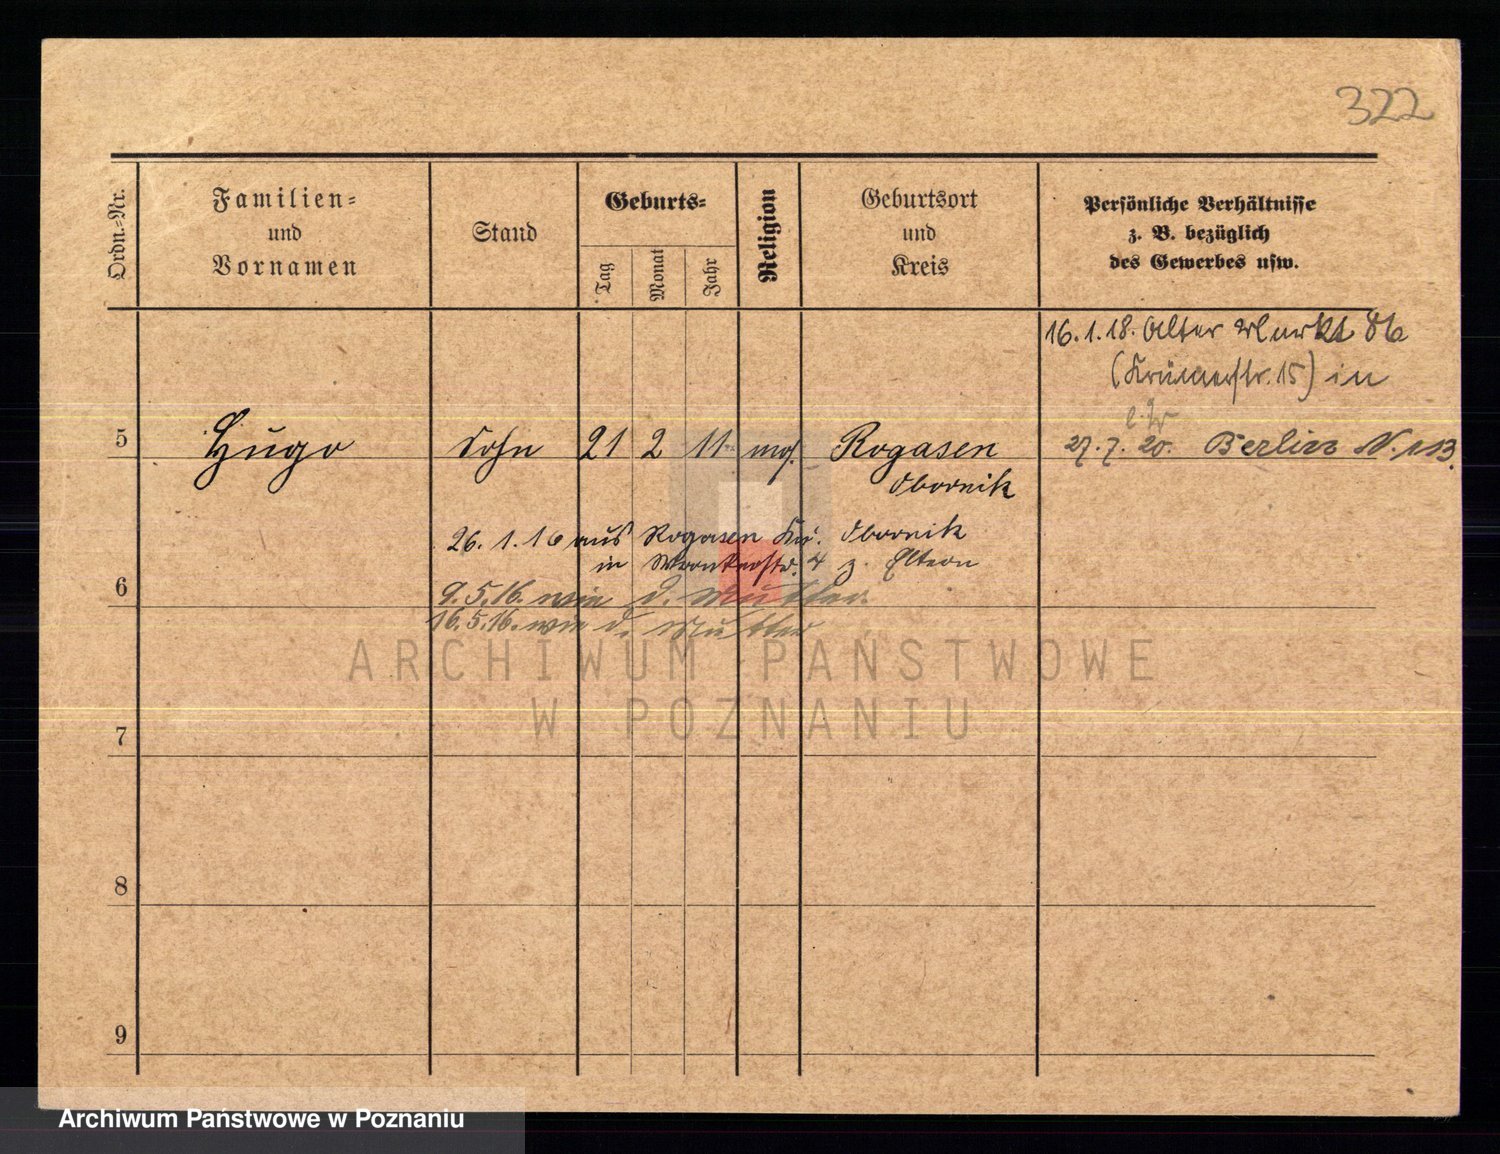 322
Ordn.-Nr.
Familien-
und
Vornamen
Stand
Geburts-
Tag
Monat
Jahr
Religion
Geburtsort
und
Kreis
Persönliche Verhältnisse
z. B. bezüglich
des Gewerbes usw.
16.1.18. Alter Markt 86
(Krämerstr. 15) in
5 Hugo Sohn 21 2 11 mos. Rogasen 27.7.20. Berlin N.113.
Obornik
26.1.16 aus Rogasen Kr. Obornik
in Wronkerstr. 4 z. Eltern
6
9.5.16. wie d. Mutter.
16.5.16. wie d. Mutter
ARCHIWUM PAŃSTWOWE
W POZNANIU
7
8
9
Archiwum Państwowe w Poznaniu